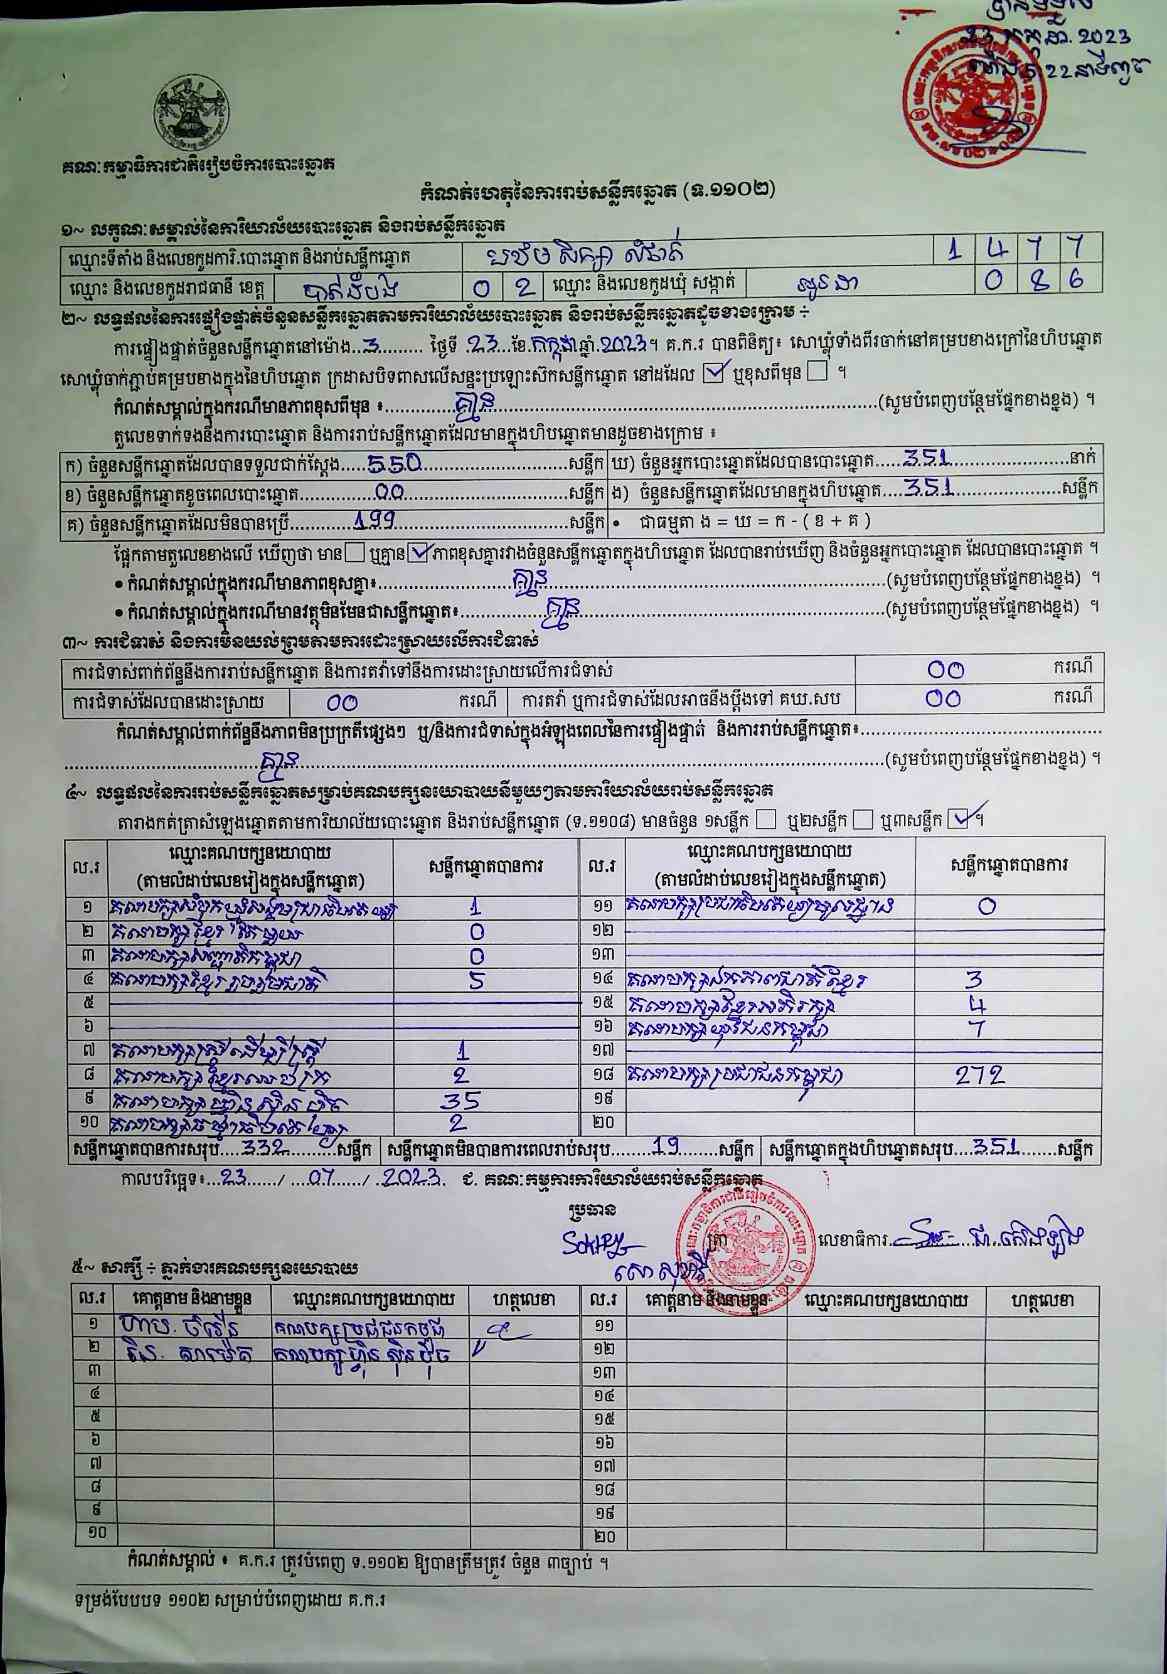 2023
22
គណៈកម្មាធិការជាតិរៀបចំការបោះឆ្នោត
កំណត់ហេតុនៃការរាប់សន្លឹកឆ្នោត (ទ.១១០២)
១~ លក្ខណៈសម្គាល់នៃការិយាល័យបោះឆ្នោត និងរាប់សន្លឹកឆ្នោត
ឈ្មោះទីតាំង និងលេខកូដការិ.បោះឆ្នោត និងរាប់សន្លឹកឆ្នោត បឋមសិក្សា 1 4 7 7
ឈ្មោះ និងលេខកូដរាជធានី ខេត្ត បាត់ដំបង 0 2 ឈ្មោះ និងលេខកូដឃុំ សង្កាត់ 0 8 6
២~ លទ្ធផលនៃការផ្ទៀងផ្ទាត់ចំនួនសន្លឹកឆ្នោតតាមការិយាល័យបោះឆ្នោត និងរាប់សន្លឹកឆ្នោតដូចខាងក្រោម ÷
ការផ្ទៀងផ្ទាត់ចំនួនសន្លឹកឆ្នោតនៅម៉ោង...3......... ថ្ងៃទី..23..ខែ.កក្កដាឆ្នាំ.2023។ គ.ក.រ បានពិនិត្យ៖ សោឃ្លុំទាំងពីរចាក់នៅគម្របខាងក្រៅនៃហិបឆ្នោត
សោឃ្លុំចាក់ភ្ជាប់គម្របខាងក្នុងនៃហិបឆ្នោត ក្រដាសបិទពាសលើសន្ទះប្រឡោះស៊កសន្លឹកឆ្នោត នៅដដែល ☑ ឬខុសពីមុន ☐ ។
កំណត់សម្គាល់ក្នុងករណីមានភាពខុសពីមុន ៖...........គ្មាន...........(សូមបំពេញបន្ថែមផ្នែកខាងខ្នង) ។
តួលេខទាក់ទងនឹងការបោះឆ្នោត និងការរាប់សន្លឹកឆ្នោតដែលមានក្នុងហិបឆ្នោតមានដូចខាងក្រោម ៖
ក) ចំនួនសន្លឹកឆ្នោតដែលបានទទួលជាក់ស្តែង.....550...........សន្លឹក ឃ) ចំនួនអ្នកបោះឆ្នោតដែលបានបោះឆ្នោត.....351...........នាក់
ខ) ចំនួនសន្លឹកឆ្នោតខូចពេលបោះឆ្នោត...........00...........សន្លឹក ង) ចំនួនសន្លឹកឆ្នោតដែលមានក្នុងហិបឆ្នោត....351...........សន្លឹក
គ) ចំនួនសន្លឹកឆ្នោតដែលមិនបានប្រើ.........199...........សន្លឹក • ជាធម្មតា ង = ឃ = ក - ( ខ + គ )
ផ្អែកតាមតួលេខខាងលើ ឃើញថា មាន ☐ ឬគ្មាន ☑ ភាពខុសគ្នារវាងចំនួនសន្លឹកឆ្នោតក្នុងហិបឆ្នោត ដែលបានរាប់ឃើញ និងចំនួនអ្នកបោះឆ្នោត ដែលបានបោះឆ្នោត ។
• កំណត់សម្គាល់ក្នុងករណីមានភាពខុសគ្នា៖...........គ្មាន...........(សូមបំពេញបន្ថែមផ្នែកខាងខ្នង) ។
• កំណត់សម្គាល់ក្នុងករណីមានវត្ថុមិនមែនជាសន្លឹកឆ្នោត៖...........គ្មាន...........(សូមបំពេញបន្ថែមផ្នែកខាងខ្នង) ។
៣~ ការជំទាស់ និងការមិនយល់ព្រមតាមការដោះស្រាយលើការជំទាស់
ការជំទាស់ពាក់ព័ន្ធនឹងការរាប់សន្លឹកឆ្នោត និងការតវ៉ាទៅនឹងការដោះស្រាយលើការជំទាស់ 00 ករណី
ការជំទាស់ដែលបានដោះស្រាយ 00 ករណី ការតវ៉ា ឬការជំទាស់ដែលអាចនឹងប្តឹងទៅ គឃ.សប 00 ករណី
កំណត់សម្គាល់ពាក់ព័ន្ធនឹងភាពមិនប្រក្រតីផ្សេងៗ ឬ/និងការជំទាស់ក្នុងអំឡុងពេលនៃការផ្ទៀងផ្ទាត់ និងការរាប់សន្លឹកឆ្នោត៖...........
...........គ្មាន...........(សូមបំពេញបន្ថែមផ្នែកខាងខ្នង) ។
៤~ លទ្ធផលនៃការរាប់សន្លឹកឆ្នោតសម្រាប់គណបក្សនយោបាយនីមួយៗតាមការិយាល័យរាប់សន្លឹកឆ្នោត
តារាងកត់ត្រាសំឡេងឆ្នោតតាមការិយាល័យបោះឆ្នោត និងរាប់សន្លឹកឆ្នោត (ទ.១១០៨) មានចំនួន ១សន្លឹក ☐ ឬ២សន្លឹក ☐ ឬ៣សន្លឹក ☑ ។
ល.រ ឈ្មោះគណបក្សនយោបាយ (តាមលំដាប់លេខរៀងក្នុងសន្លឹកឆ្នោត) សន្លឹកឆ្នោតបានការ ល.រ ឈ្មោះគណបក្សនយោបាយ (តាមលំដាប់លេខរៀងក្នុងសន្លឹកឆ្នោត) សន្លឹកឆ្នោតបានការ
១ 1 ១១ គណបក្សប្រជាធិបតេយ្យមូលដ្ឋាន 0
២ គណបក្សខ្មែរតែមួយ 0 ១២
៣ គណបក្សសញ្ជាតិកម្ពុជា 0 ១៣
៤ គណបក្សខ្មែររួបរួមជាតិ 5 ១៤ គណបក្សឯកភាពជាតិខ្មែរ 3
៥ ១៥ គណបក្សខ្មែរអភិរក្ស 4
៦ ១៦ គណបក្សយុវជនកម្ពុជា 7
៧ គណបក្សស្ត្រីដើម្បីស្ត្រី 1 ១៧
៨ គណបក្សខ្មែរឈប់ក្រ 2 ១៨ គណបក្សប្រជាជនកម្ពុជា 272
៩ គណបក្សហ្វ៊ុនស៊ិនប៉ិច 35 ១៩
១០ គណបក្សធម្មាធិបតេយ្យ 2 ២០
សន្លឹកឆ្នោតបានការសរុប....332.........សន្លឹក សន្លឹកឆ្នោតមិនបានការពេលរាប់សរុប.......19.......សន្លឹក សន្លឹកឆ្នោតក្នុងហិបឆ្នោតសរុប....351.......សន្លឹក
កាលបរិច្ឆេទ៖...23....../...07....../...2023. ជ. គណៈកម្មការការិយាល័យរាប់សន្លឹកឆ្នោត
ប្រធាន
ត្រា លេខាធិការ
៥~ សាក្សី ÷ ភ្នាក់ងារគណបក្សនយោបាយ
ល.រ គោត្តនាម និងនាមខ្លួន ឈ្មោះគណបក្សនយោបាយ ហត្ថលេខា ល.រ គោត្តនាម និងនាមខ្លួន ឈ្មោះគណបក្សនយោបាយ ហត្ថលេខា
១ គណបក្សប្រជាជនកម្ពុជា ១១
២ គណបក្សហ្វ៊ុនស៊ិនប៉ិច ១២
៣ ១៣
៤ ១៤
៥ ១៥
៦ ១៦
៧ ១៧
៨ ១៨
៩ ១៩
១០ ២០
កំណត់សម្គាល់ ៖ គ.ក.រ ត្រូវបំពេញ ទ.១១០២ ឱ្យបានត្រឹមត្រូវ ចំនួន ៣ច្បាប់ ។
ទម្រង់បែបបទ ១១០២ សម្រាប់បំពេញដោយ គ.ក.រ